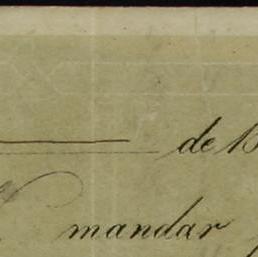 de 18
mandar